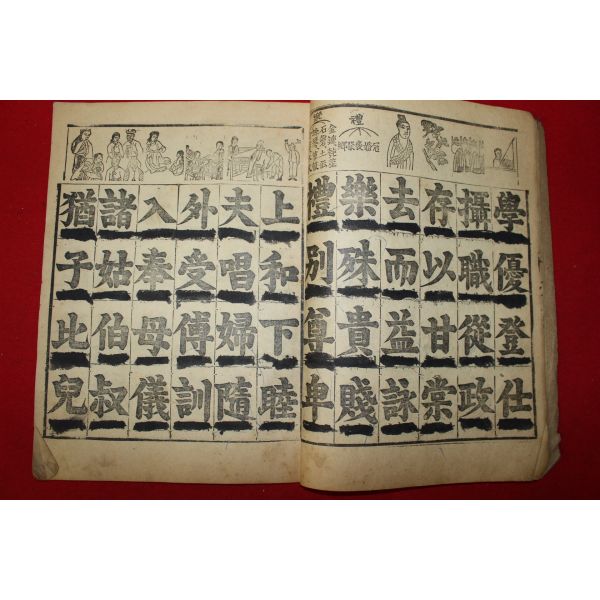 禮
冠婚喪祭鄉
學優登仕
攝職從政
存以甘棠
去而益詠
樂殊貴賤
禮別尊卑
上和下睦
夫唱婦隨
外受傅訓
入奉母儀
諸姑伯叔
猶子比兒